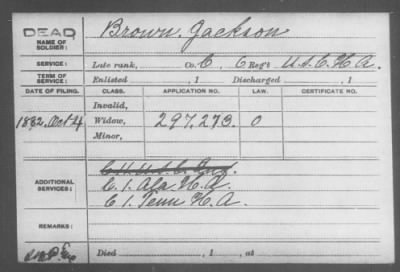 DEAD
NAME OF SOLDIER: Brown, Jackson
SERVICE: Late rank, Co. C, 6 Reg't U.S.C.H.A.
TERM OF SERVICE: Enlisted , 1 Discharged , 1
DATE OF FILING. CLASS. APPLICATION NO. LAW. CERTIFICATE NO.
Invalid,
1882, Oct 4 Widow, 297,273. 0
Minor,
ADDITIONAL SERVICES: C. 11 U.S.C. Inf.
C. 1. Ala H.A.
C 1. Tenn H.A.
REMARKS:
Died , 1 , at